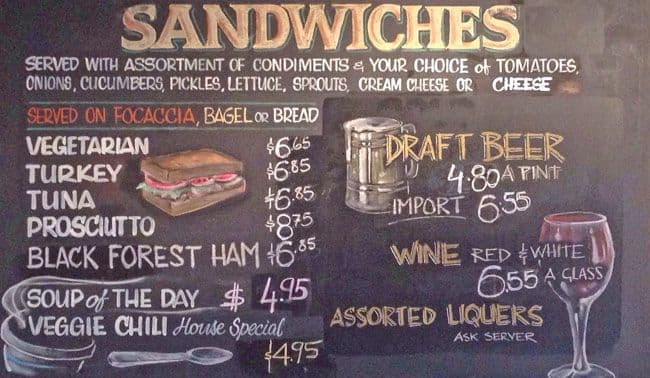 SANDWICHES
SERVED WITH ASSORTMENT OF CONDIMENTS & YOUR CHOICE of TOMATOES,
ONIONS, CUCUMBERS, PICKLES, LETTUCE, SPROUTS, CREAM CHEESE OR CHEESE
SERVED ON FOCACCIA, BAGEL OR BREAD
VEGETARIAN $6.65
TURKEY $6.85
TUNA $6.85
PROSCIUTTO $8.75
BLACK FOREST HAM $6.85
SOUP of THE DAY $4.95
VEGGIE CHILI House Special
$4.95
DRAFT BEER
4.80 A PINT
IMPORT 6.55
WINE RED & WHITE
6.55 A GLASS
ASSORTED LIQUERS
ASK SERVER